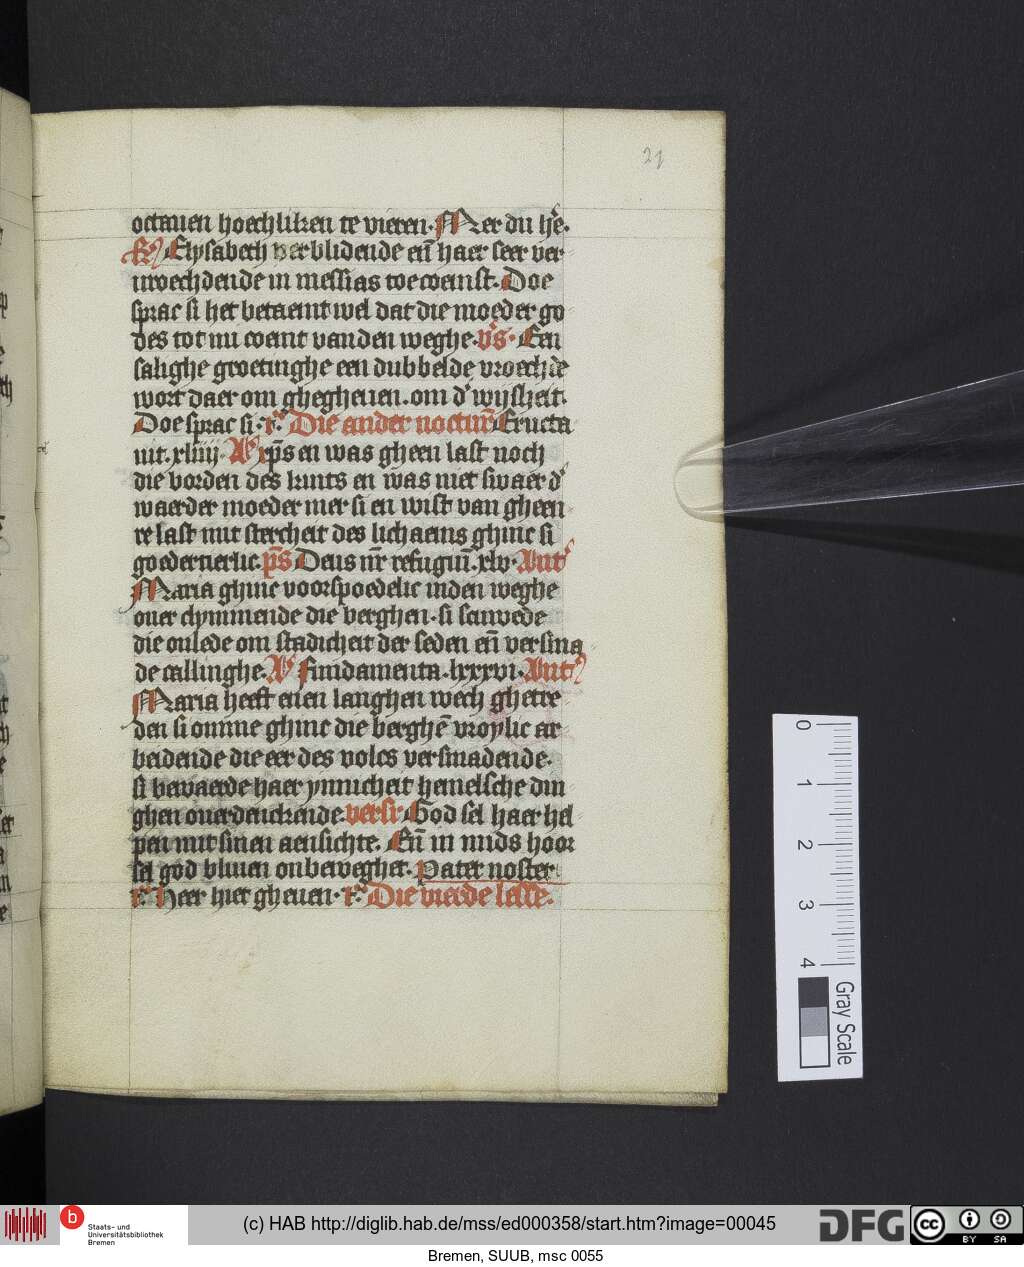 21
octauen hoechliken te vieren. Mer du he.
R Elysabeth verblidende eñ haer seer ver
uroechdende in messias toecoemst. Doe
sprac si het betaemt wel dat die moeder go
des tot mi coemt van den weghe. v̄s. Een
salighe groetinghe een dubbelde vroechde
wort daer om ghegheuen. om d' wijsheit.
Doe sprac si. r. Die ander noctur̄ Eructa
uit. xliiij. A xp̄s en was gheen last noch
die borden des kints en was niet swaer d'
waerder moeder mer si en wist van gheen
re last mit stercheit des lichaems ghinc si
goedertierlic. p̄s Deus nr̄ refugiū. xlv. Ant
Maria ghinc voorspoedelic inden weghe
ouer clymmende die berghen. si scuwede
die oulede om stadicheit der seden eñ versma
de callinghe. Fundamenta. lxxxvi. Ant
Maria heeft enen langhen wech ghetre
den si omme ghinc die berghē vroylic ar
beidende die eer des volcs versmadende.
si bewaerde haer ynnicheit hemelsche din
ghen ouerdenckende. versi. God sel haer hel
pen mit sinen aensichte. Eñ in mids hoor
sel god bliuen onbeweghet. Pater noster
r. Heer hier gheuen. r. Die vierde lesse.
0
1
2
3
4
Gray Scale
b
Staats- und
Universitätsbibliothek
Bremen
(c) HAB http://diglib.hab.de/mss/ed000358/start.htm?image=00045
DFG
cc BY SA
Bremen, SUUB, msc 0055